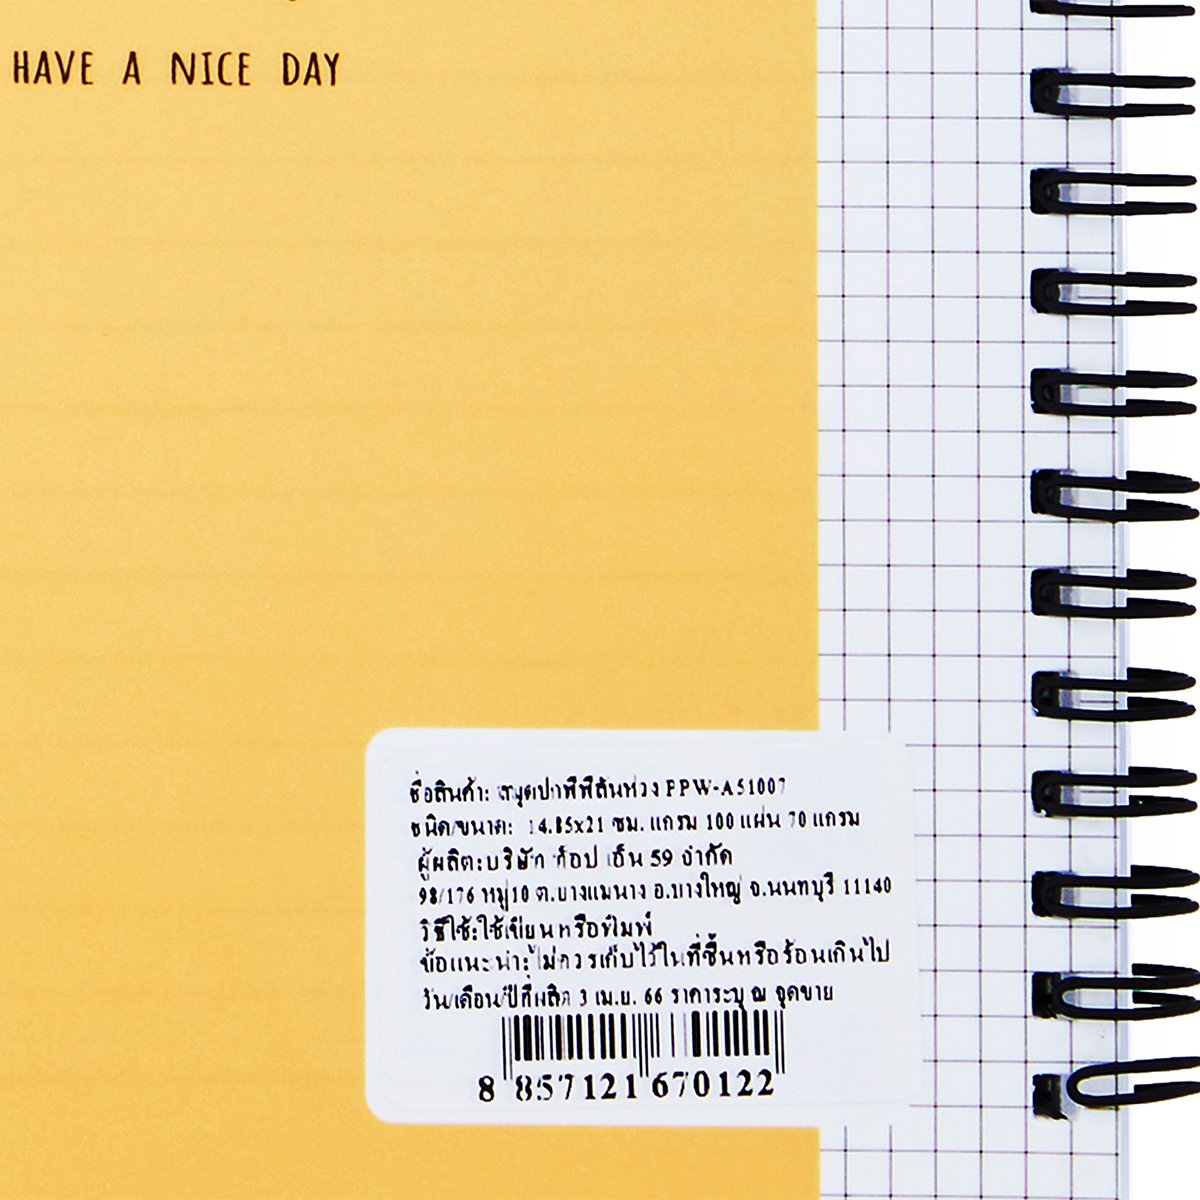 HAVE A NICE DAY
ชื่อสินค้า: สมุดปกพีพีสันห่วง PPW-A51007
ชนิด/ขนาด: 14.85x21 ซม. แกรม 100 แผ่น 70 แกรม
ผู้ผลิต:บริษัท ก็อป เอ็น 59 จำกัด
98/176 หมู่10 ต.บางแม่นาง อ.บางใหญ่ จ.นนทบุรี 11140
วิธีใช้:ใช้เขียนหรือพิมพ์
ข้อแนะนำ:ไม่ควรเก็บไว้ในที่ชื้นหรือร้อนเกินไป
วัน/เดือน/ปีที่ผลิต 3 เม.ย. 66 ราคาระบุ ณ จุดขาย
8 857121 670122